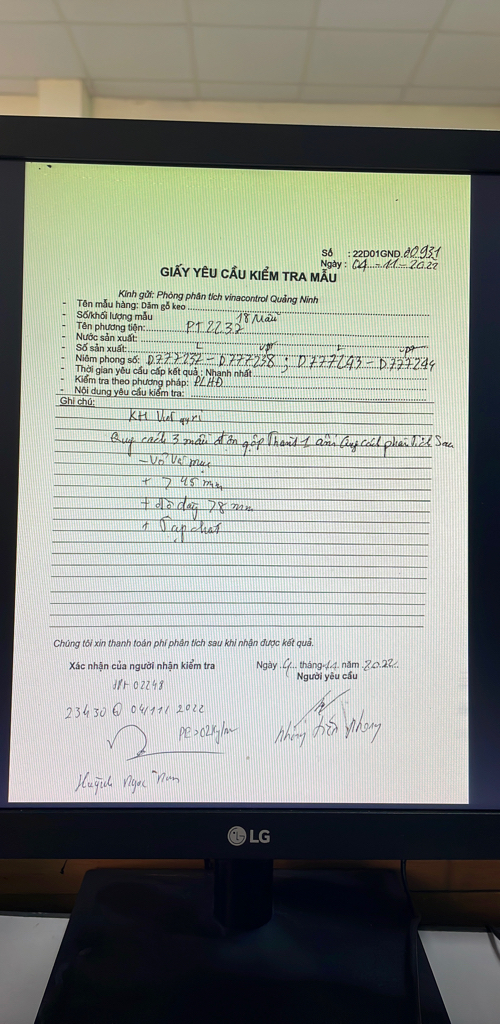 Số : 22D01GND.20931
Ngày : 04-11-2022
GIẤY YÊU CẦU KIỂM TRA MẪU
Kính gửi: Phòng phân tích vinacontrol Quảng Ninh
- Tên mẫu hàng: Dăm gỗ keo
- Số/khối lượng mẫu 18 Mẫu
- Tên phương tiện: PT2237
- Nước sản xuất:
- Số sản xuất:
- Niêm phong số: D777237-D777238; D777243-D777244
- Thời gian yêu cầu cấp kết quả : Nhanh nhất
- Kiểm tra theo phương pháp: PLHĐ
- Nội dung yêu cầu kiểm tra:
Ghi chú:
KH
Quy cách 3 mẫu gộp 1 quy cách phân tích sau
- Vỏ
+ > 45 mm
+ độ dày > 8 mm
+ Tạp chất
Chúng tôi xin thanh toán phí phân tích sau khi nhận được kết quả.
Xác nhận của người nhận kiểm tra
Ngày 4 tháng 11 năm 2022
Người yêu cầu
02248
23H30 @ 04/11/2022
Huỳnh Ngọc
LG